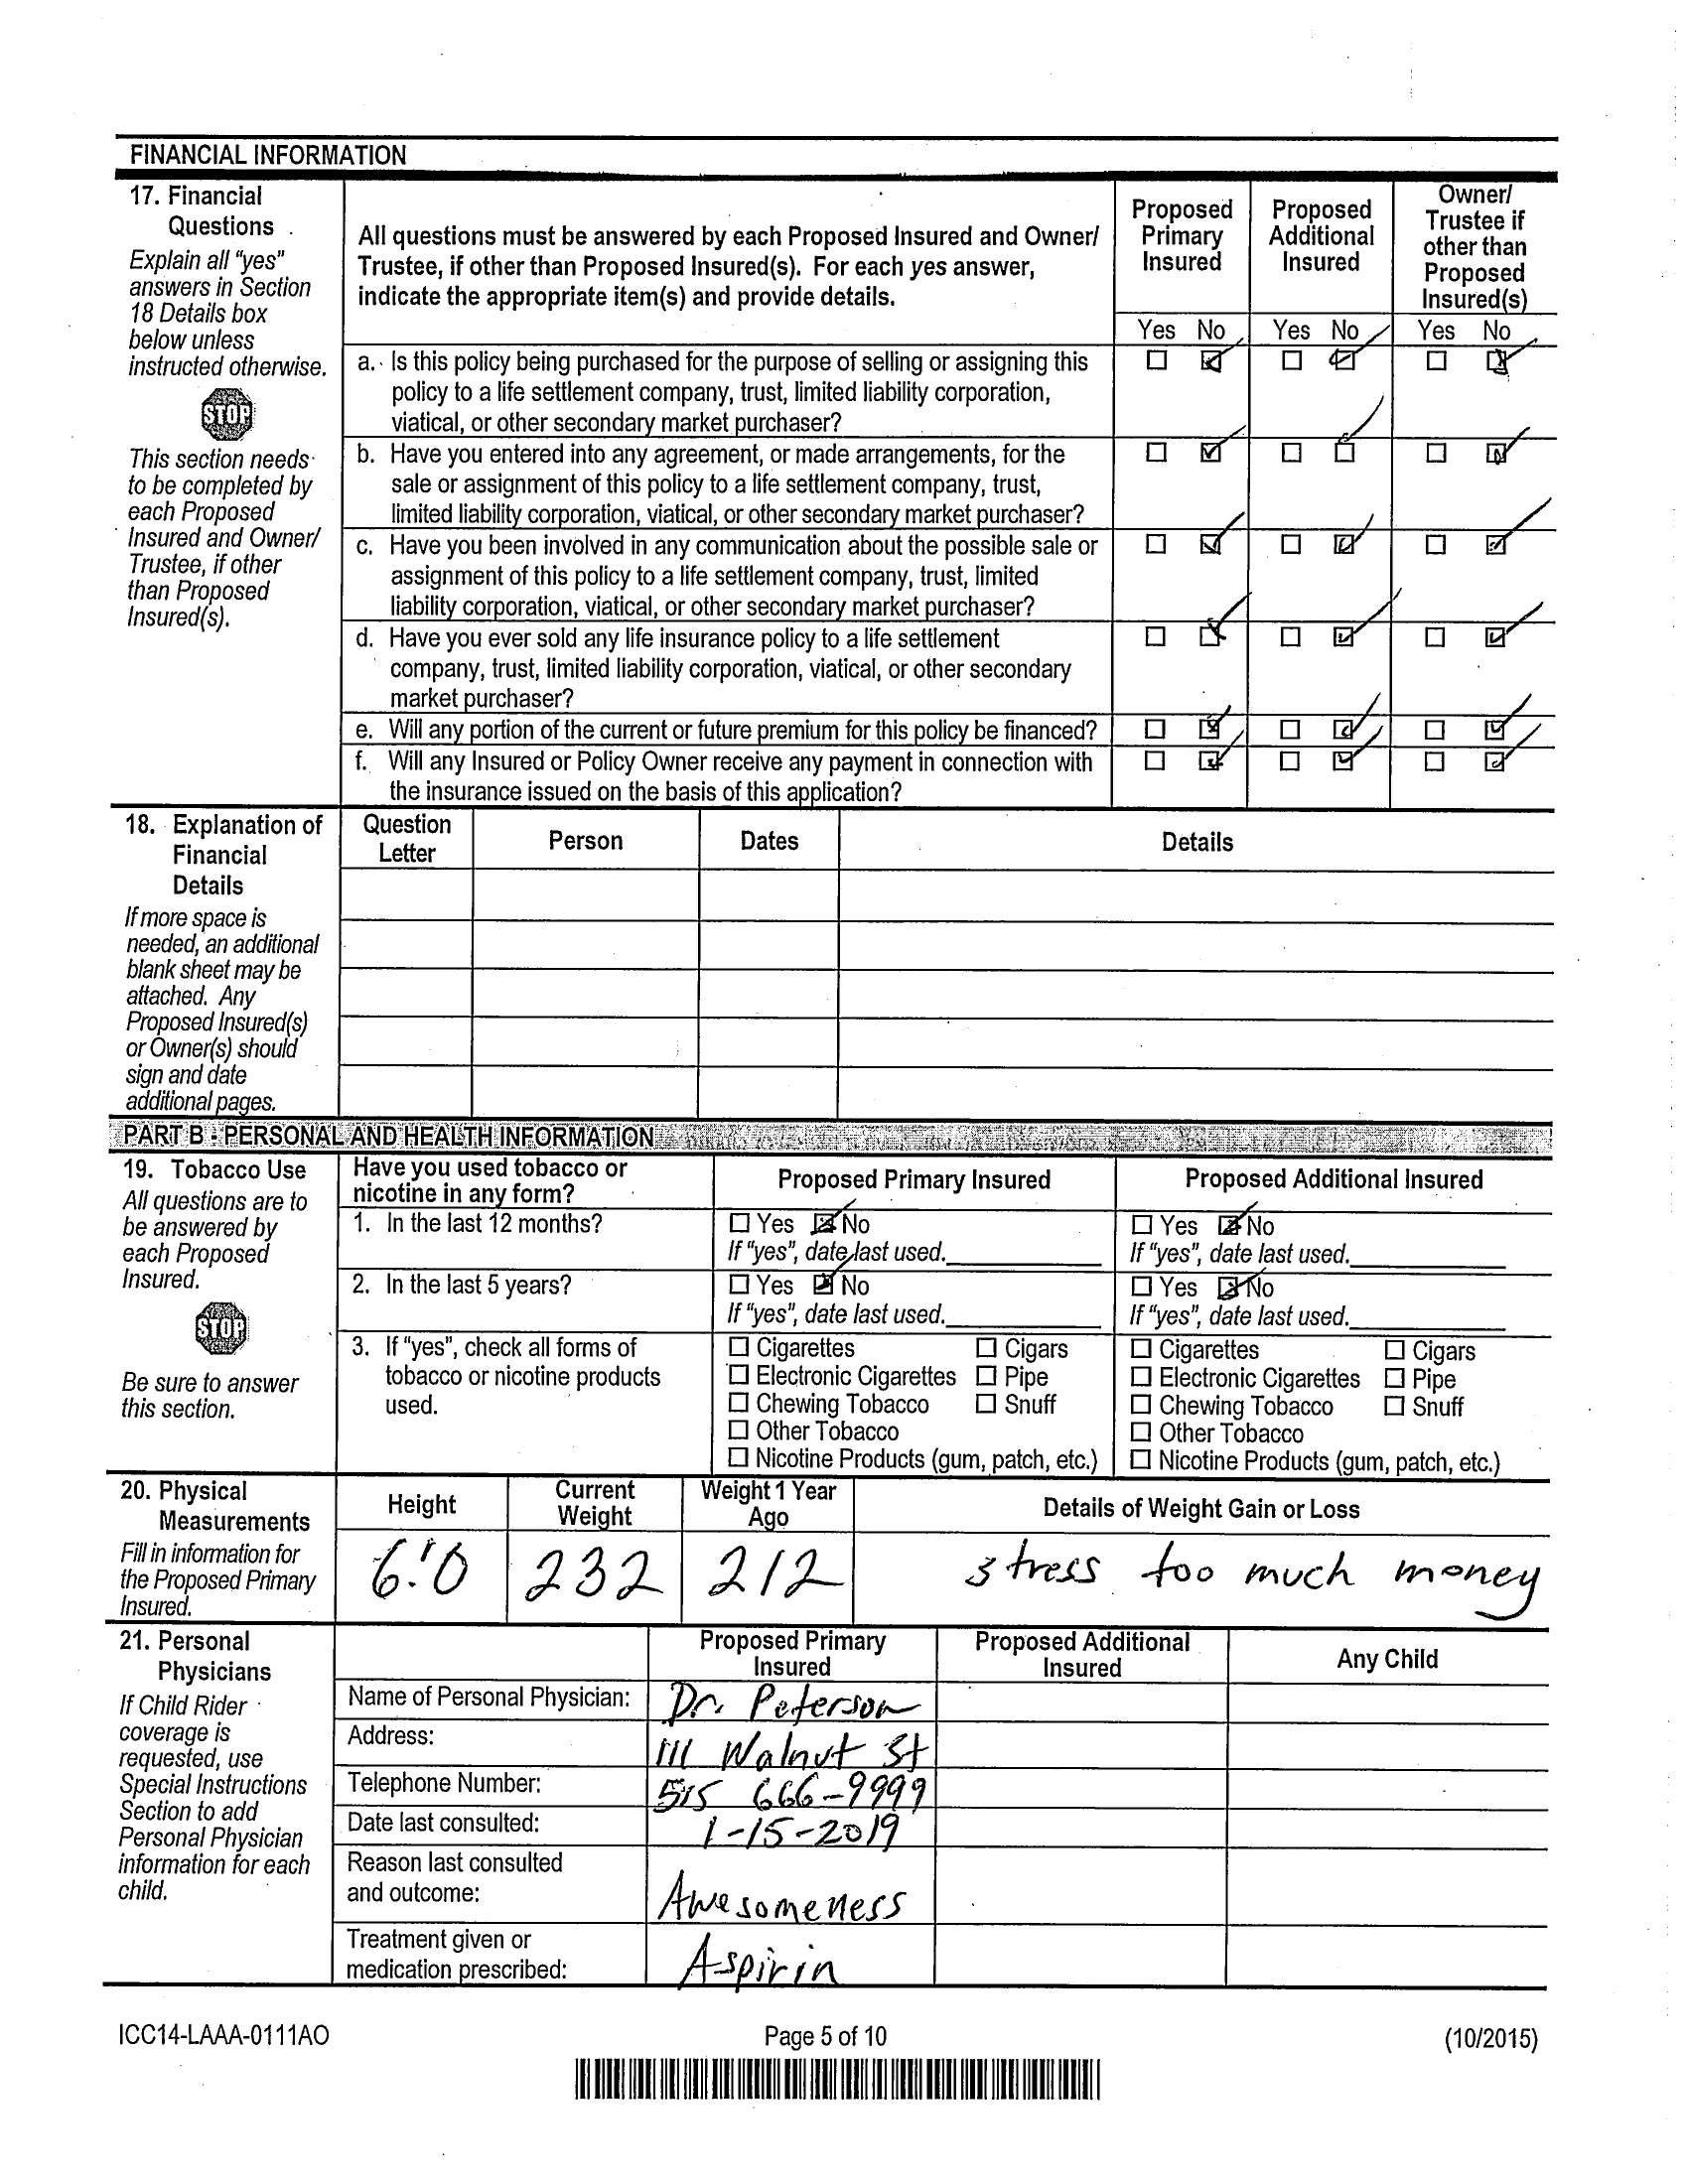 FINANCIAL INFORMATION
17. Financial Questions
Explain all "yes" answers in Section 18 Details box below unless instructed otherwise.
STOP
This section needs to be completed by each Proposed Insured and Owner/Trustee, if other than Proposed Insured(s).
All questions must be answered by each Proposed Insured and Owner/
Trustee, if other than Proposed Insured(s). For each yes answer,
indicate the appropriate item(s) and provide details.
Proposed Primary Insured
Proposed Additional Insured
Owner/ Trustee if other than Proposed Insured(s)
Yes No Yes No Yes No
a. Is this policy being purchased for the purpose of selling or assigning this
policy to a life settlement company, trust, limited liability corporation,
viatical, or other secondary market purchaser?
b. Have you entered into any agreement, or made arrangements, for the
sale or assignment of this policy to a life settlement company, trust,
limited liability corporation, viatical, or other secondary market purchaser?
c. Have you been involved in any communication about the possible sale or
assignment of this policy to a life settlement company, trust, limited
liability corporation, viatical, or other secondary market purchaser?
d. Have you ever sold any life insurance policy to a life settlement
company, trust, limited liability corporation, viatical, or other secondary
market purchaser?
e. Will any portion of the current or future premium for this policy be financed?
f. Will any Insured or Policy Owner receive any payment in connection with
the insurance issued on the basis of this application?
18. Explanation of Financial Details
If more space is needed, an additional blank sheet may be attached. Any Proposed Insured(s) or Owner(s) should sign and date additional pages.
Question Letter Person Dates Details
PART B - PERSONAL AND HEALTH INFORMATION
19. Tobacco Use
All questions are to be answered by each Proposed Insured.
STOP
Be sure to answer this section.
Have you used tobacco or nicotine in any form?
Proposed Primary Insured
Proposed Additional Insured
1. In the last 12 months?
Yes No
If "yes", date last used.
Yes No
If "yes", date last used.
2. In the last 5 years?
Yes No
If "yes", date last used.
Yes No
If "yes", date last used.
3. If "yes", check all forms of
tobacco or nicotine products
used.
Cigarettes Cigars
Electronic Cigarettes Pipe
Chewing Tobacco Snuff
Other Tobacco
Nicotine Products (gum, patch, etc.)
Cigarettes Cigars
Electronic Cigarettes Pipe
Chewing Tobacco Snuff
Other Tobacco
Nicotine Products (gum, patch, etc.)
20. Physical Measurements
Fill in information for the Proposed Primary Insured.
Height Current Weight Weight 1 Year Ago Details of Weight Gain or Loss
6'0 232 212 stress too much money
21. Personal Physicians
If Child Rider coverage is requested, use Special Instructions Section to add Personal Physician information for each child.
Proposed Primary Insured Proposed Additional Insured Any Child
Name of Personal Physician: Dr. Peterson
Address: 111 Walnut St
Telephone Number: 515 666-9999
Date last consulted: 1-15-2019
Reason last consulted and outcome: Awesomeness
Treatment given or medication prescribed: Aspirin
ICC14-LAAA-0111AO Page 5 of 10 (10/2015)